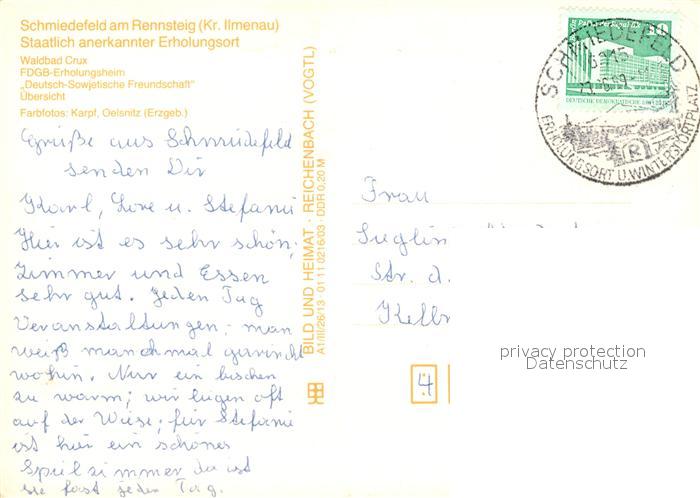 Schmiedefeld am Rennsteig (Kr. Ilmenau)
Staatlich anerkannter Erholungsort
Waldbad Crux
FDGB-Erholungsheim
„Deutsch-Sowjetische Freundschaft"
Übersicht
Farbfotos: Karpf, Oelsnitz (Erzgeb.)
Grüße aus Schmiedefeld
senden Dir
Karl, Lore u. Stefanie
Hier ist es sehr schön,
Zimmer und Essen
sehr gut. Jeden Tag
Veranstaltungen; man
weiß manchmal garnicht
wohin. Nur ein bischen
zu warm; wir liegen oft
auf der Wiese; für Stefanie
ist hier ein schönes
Spielzimmer da ist
sie fast jeden Tag.
BILD UND HEIMAT · REICHENBACH (VOGTL)
A1/III/26/13 01 11 0216/03 · DDR 0,20 M
SCHMIEDEFELD
ERHOLUNGSORT U. WINTERSPORTPLATZ
DEUTSCHE DEMOKRATISCHE
Frau
Str. d.
4
privacy protection
Datenschutz